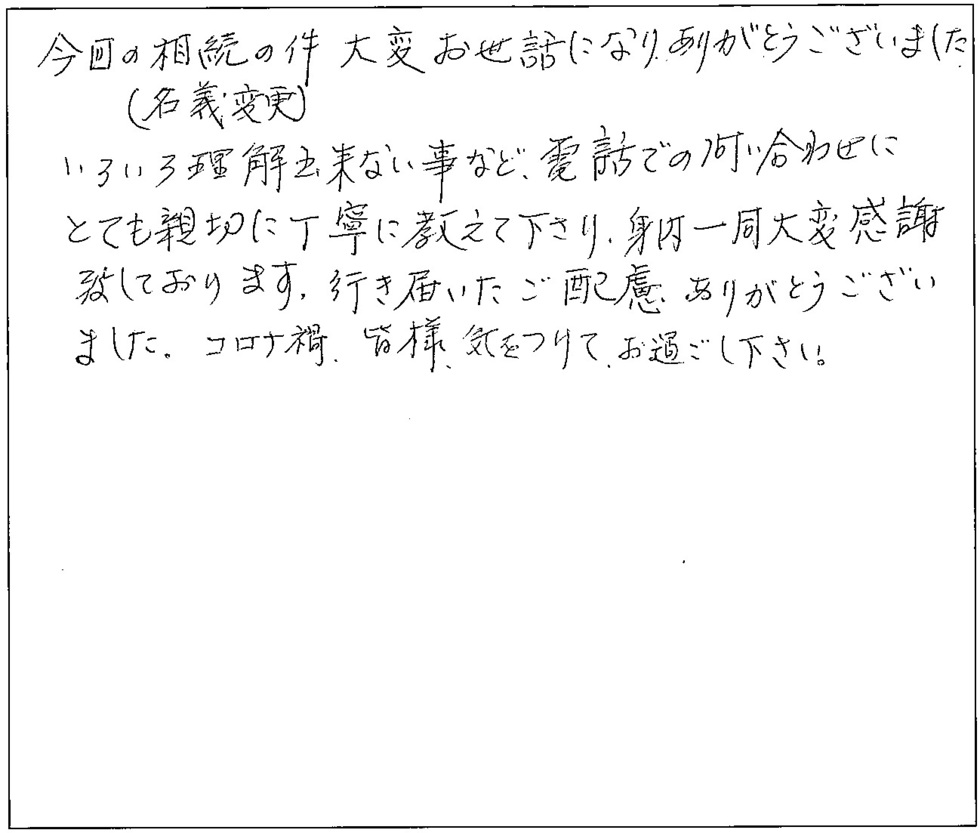 今回の相続の件 大変お世話になり、ありがとうございました
(名義変更)
いろいろ理解出来ない事など、電話での問い合わせに
とても親切に丁寧に教えて下さり、身内一同大変感謝
致しております。行き届いたご配慮、ありがとうござい
ました。コロナ禍、皆様、気をつけて、お過ごし下さい。